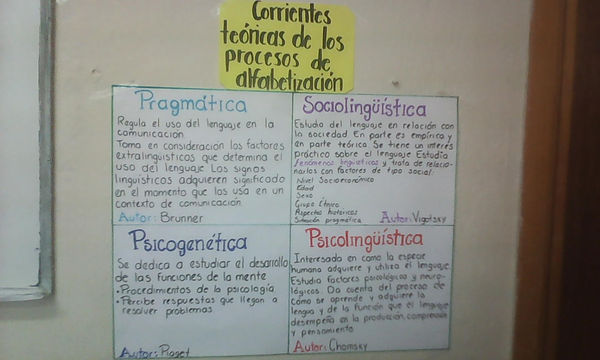 Corrientes
teóricas de los
procesos de
alfabetización
Pragmática
Regula el uso del lenguaje en la
comunicación.
Toma en consideración los factores
extralingüísticos que determina el
uso del lenguaje. Los signos
lingüísticos adquieren significado
en el momento que los usa en un
contexto de comunicación.
Autor: Brunner
Sociolingüística
Estudio del lenguaje en relación con
la sociedad. En parte es empírica y
en parte teórica. Se tiene un interés
práctico sobre el lenguaje. Estudia
fenómenos lingüísticos y trata de relacio-
narlos con factores de tipo social:
Nivel Socioeconómico
Edad
Sexo
Grupo Étnico
Aspectos históricos
Situación pragmática
Autor: Vigotsky
Psicogenética
Se dedica a estudiar el desarrollo
de las funciones de la mente
• Procedimientos de la psicología.
• Percibe respuestas que llegan a
resolver problemas.
Autor: Piaget
Psicolingüística
Interesada en como la especie
humana adquiere y utiliza el lenguaje.
Estudia factores psicológicos y neuro-
lógicos. Da cuenta del proceso de
cómo se aprende y adquiere la
lengua y de la función que el lenguaje
desempeña en la producción, comprensión
y pensamiento.
Autor: Chomsky